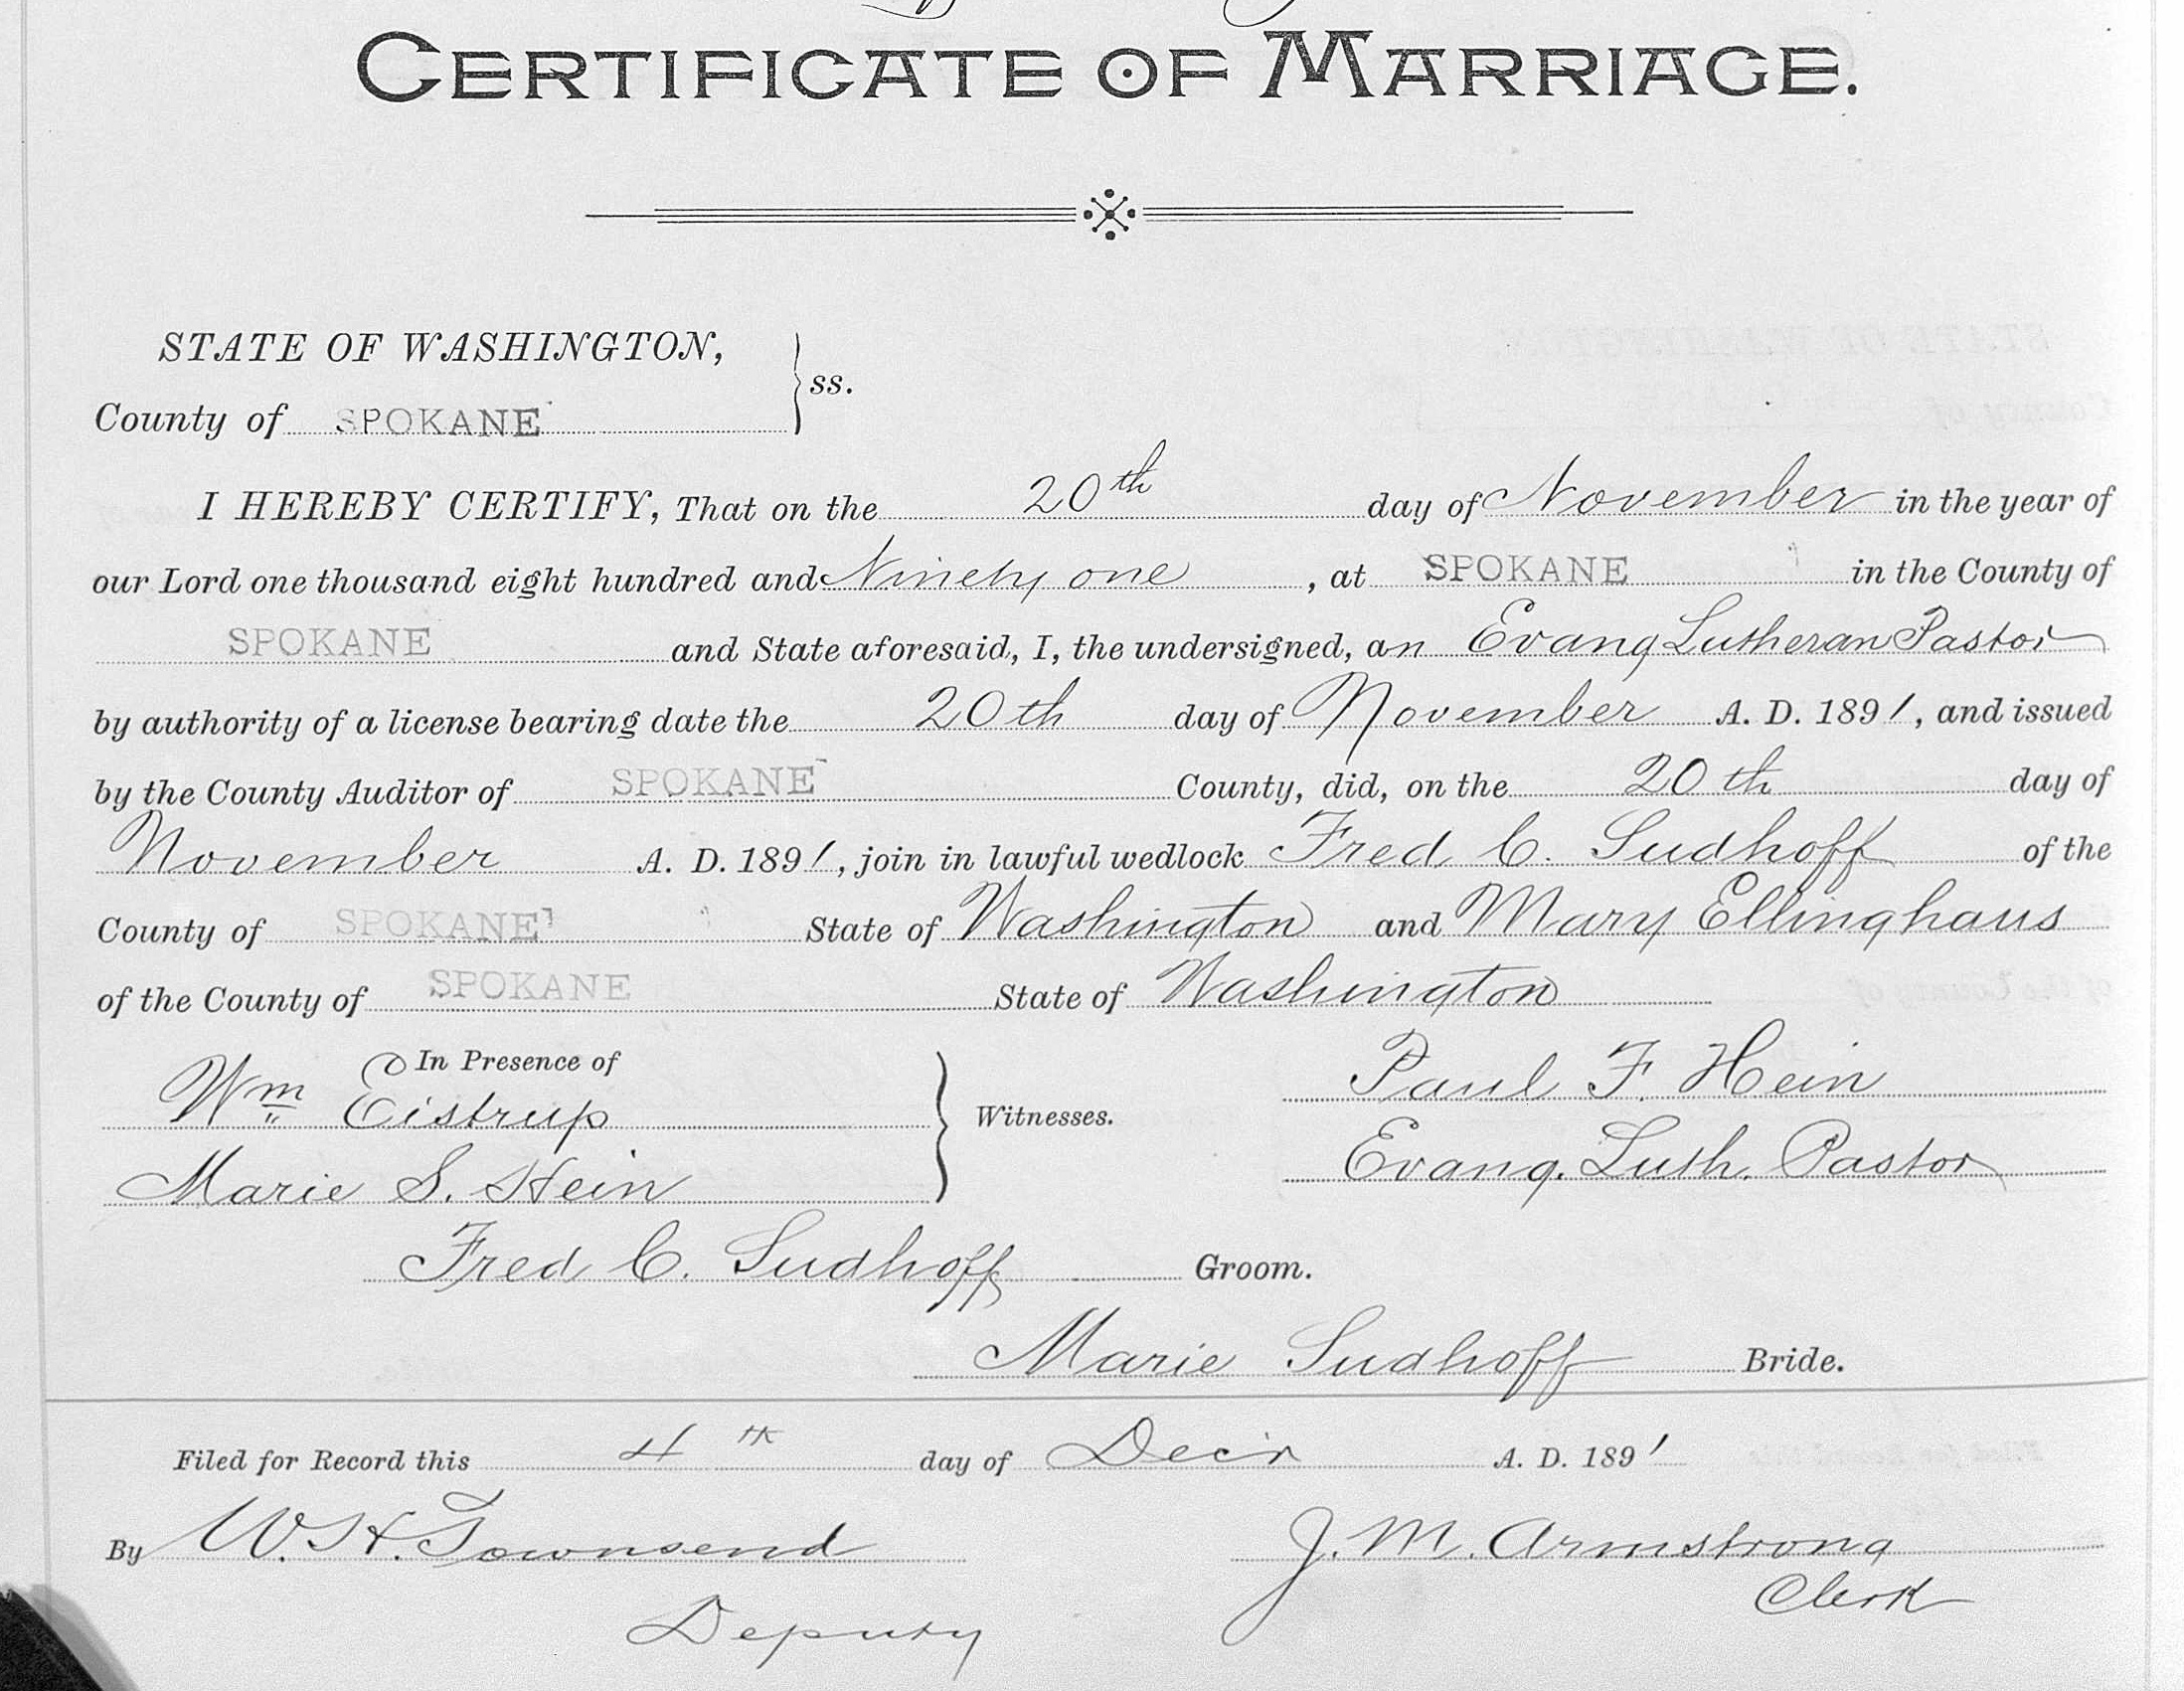 CERTIFICATE OF MARRIAGE.
STATE OF WASHINGTON,
ss.
County of SPOKANE
I HEREBY CERTIFY, That on the 20th day of November in the year of
our Lord one thousand eight hundred and Ninety one, at SPOKANE in the County of
SPOKANE and State aforesaid, I, the undersigned, an Evang Lutheran Pastor
by authority of a license bearing date the 20th day of November A. D. 1891, and issued
by the County Auditor of SPOKANE County, did, on the 20th day of
November A. D. 1891, join in lawful wedlock Fred C. Sudhoff of the
County of SPOKANE State of Washington and Mary Ellinghaus
of the County of SPOKANE State of Washington
In Presence of
Wm Eistrup Witnesses. Paul F. Hein
Marie S. Hein Evang. Luth. Pastor
Fred C. Sudhoff Groom.
Marie Sudhoff Bride.
Filed for Record this 4th day of Dec'r A. D. 1891
By W. H. Townsend J. M. Armstrong
Deputy Clerk